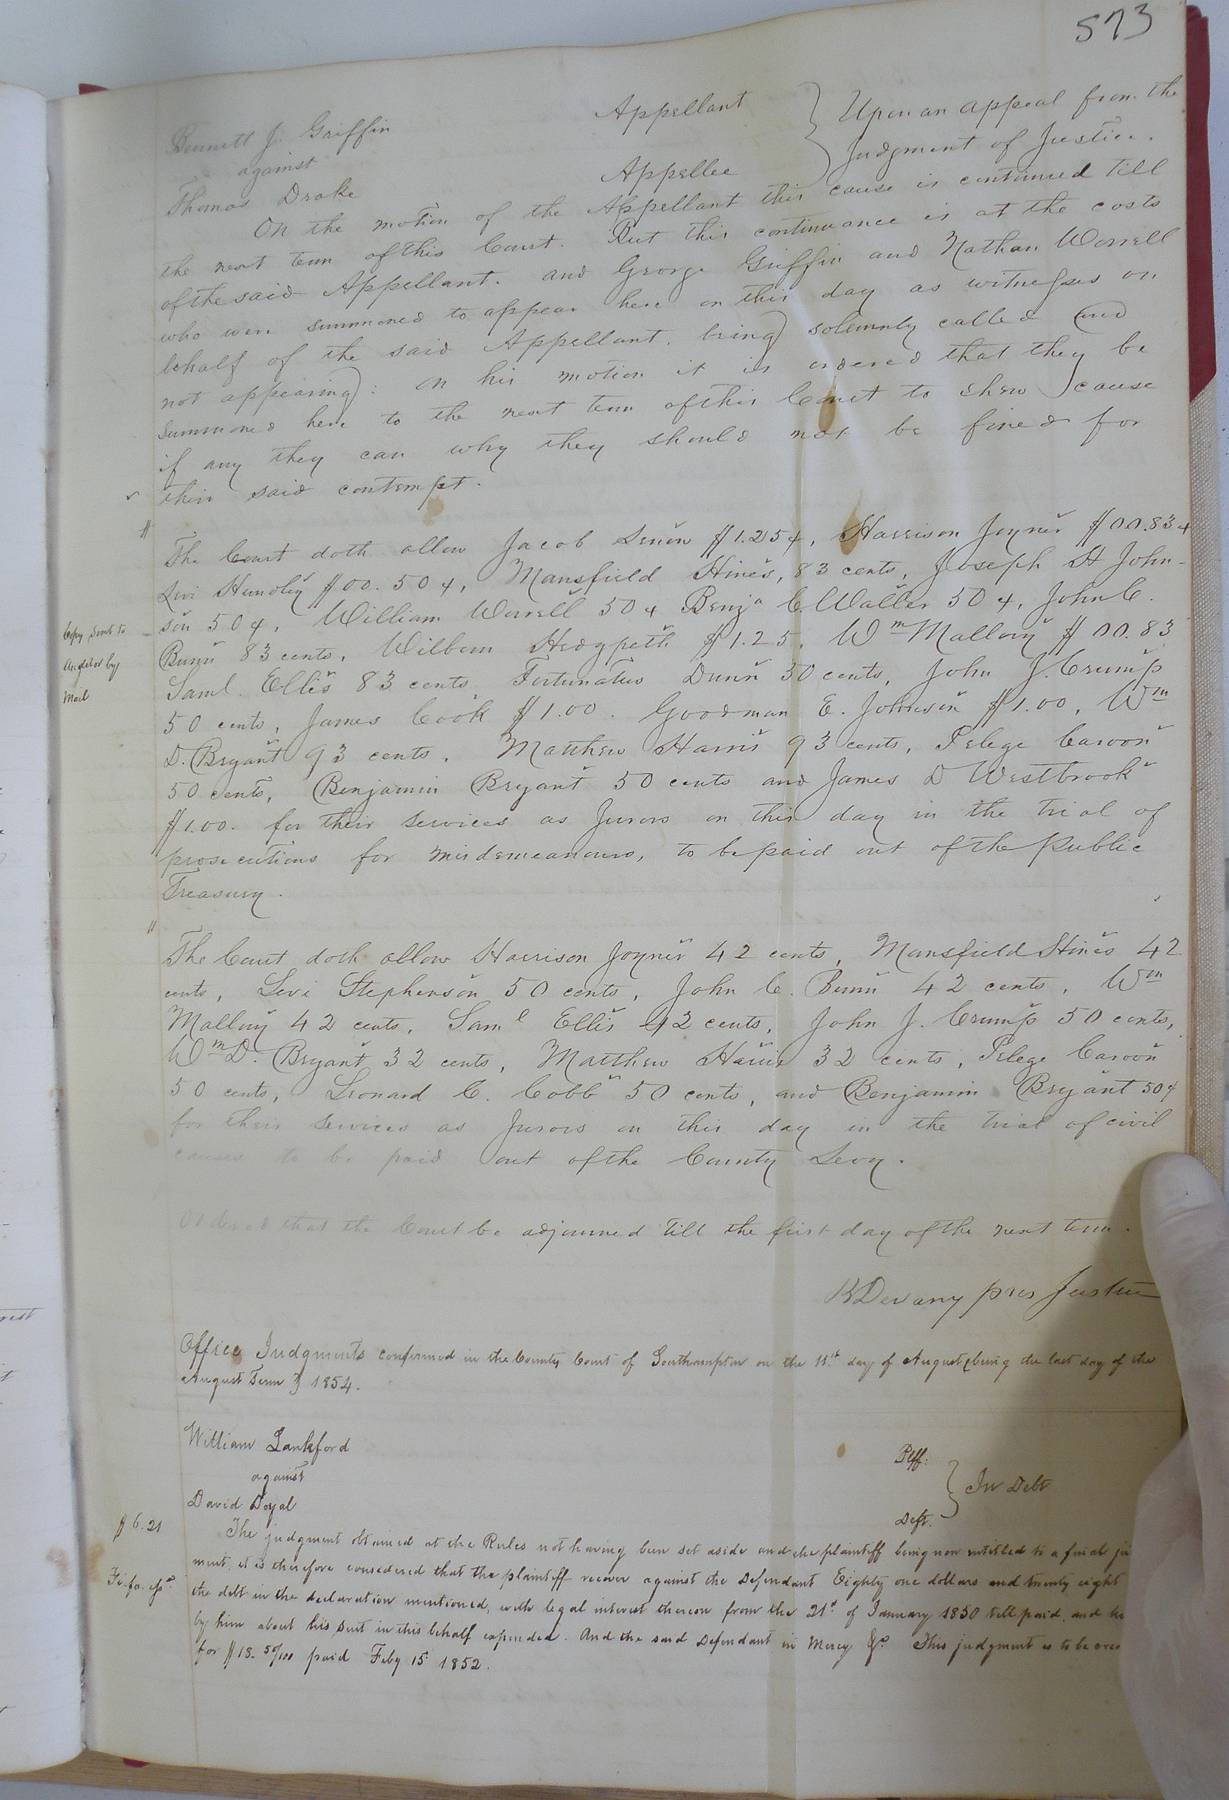 573
Bennett J. Griffin Appellant
against
Thomas Drake Appellee
Upon an appeal from the
Judgment of Justice.
On the motion of the Appellant this cause is continued till
the next term of this Court. But this continuance is at the costs
of the said Appellant. and George Griffin and Nathan Worrell
who were summoned to appear here on this day as witnesses on
behalf of the said Appellant. being) solemnly called (and
not appearing): on his motion it is ordered that they be
summoned here to the next term of this Court to shew cause
if any they can why they should not be fined for
their said contempt.
The Court doth allow Jacob $1.25¢, Harrison Joyner $00.83¢
Levi $00.50¢, Mansfield Hines, 83 cents, Joseph H John-
son 50¢, William Worrell 50¢ Benja C. Waller 50¢, John C.
Bunn 83 cents, William Hedgpeth $1.25, Wm Mallory $00.83
Saml. Ellis 83 cents, Fortunatus Dunn 50 cents, John J. Crump
50 cents, James Cook $1.00. Goodman E. Johnson $1.00, Wm
D. Bryant 93 cents, Matthew Harris 93 cents, Pelege Caroon
50 cents, Benjamin Bryant 50 cents and James D Westbrook
$1.00. for their services as Jurors on this day in the trial of
prosecutions for misdemeanours, to be paid out of the Public
Treasury.
Copy sent to
Auditor by
Mail
The Court doth allow Harrison Joyner 42 cents, Mansfield Hines 42
cents, Levi Stephenson 50 cents, John C. Bunn 42 cents, Wm
Mallory 42 cents, Saml Ellis 42 cents, John J. Crump 50 cents,
Wm D. Bryant 32 cents, Matthew Harris 32 cents, Pelege Caroon
50 cents, Leonard C. Cobb 50 cents, and Benjamin Bryant 50¢
for their services as Jurors on this day in the trial of civil
causes to be paid out of the County Levy.
Ordered that the Court be adjourned till the first day of the next term.
Devany pres Justice
Office Judgments confirmed in the County Court of Southampton on the day of August (being the last day of the
August Term) 1854.
William Lankford Plff:
against
David Doyal Deft.
In Debt
$6.21
Fi. fa.
The judgment obtained at the Rules not having been set aside and the plaintiff being now entitled to a final
ment, it is therefore considered that the plaintiff recover against the Defendant Eighty one dollars and twenty eight
the debt in the declaration mentioned, with legal interest thereon from the 21st of January 1850 till paid, and
by him about his suit in this behalf expended. And the said Defendant in Mercy &c. This judgment is to be
for $18.50/100 paid Feby 15 1852.